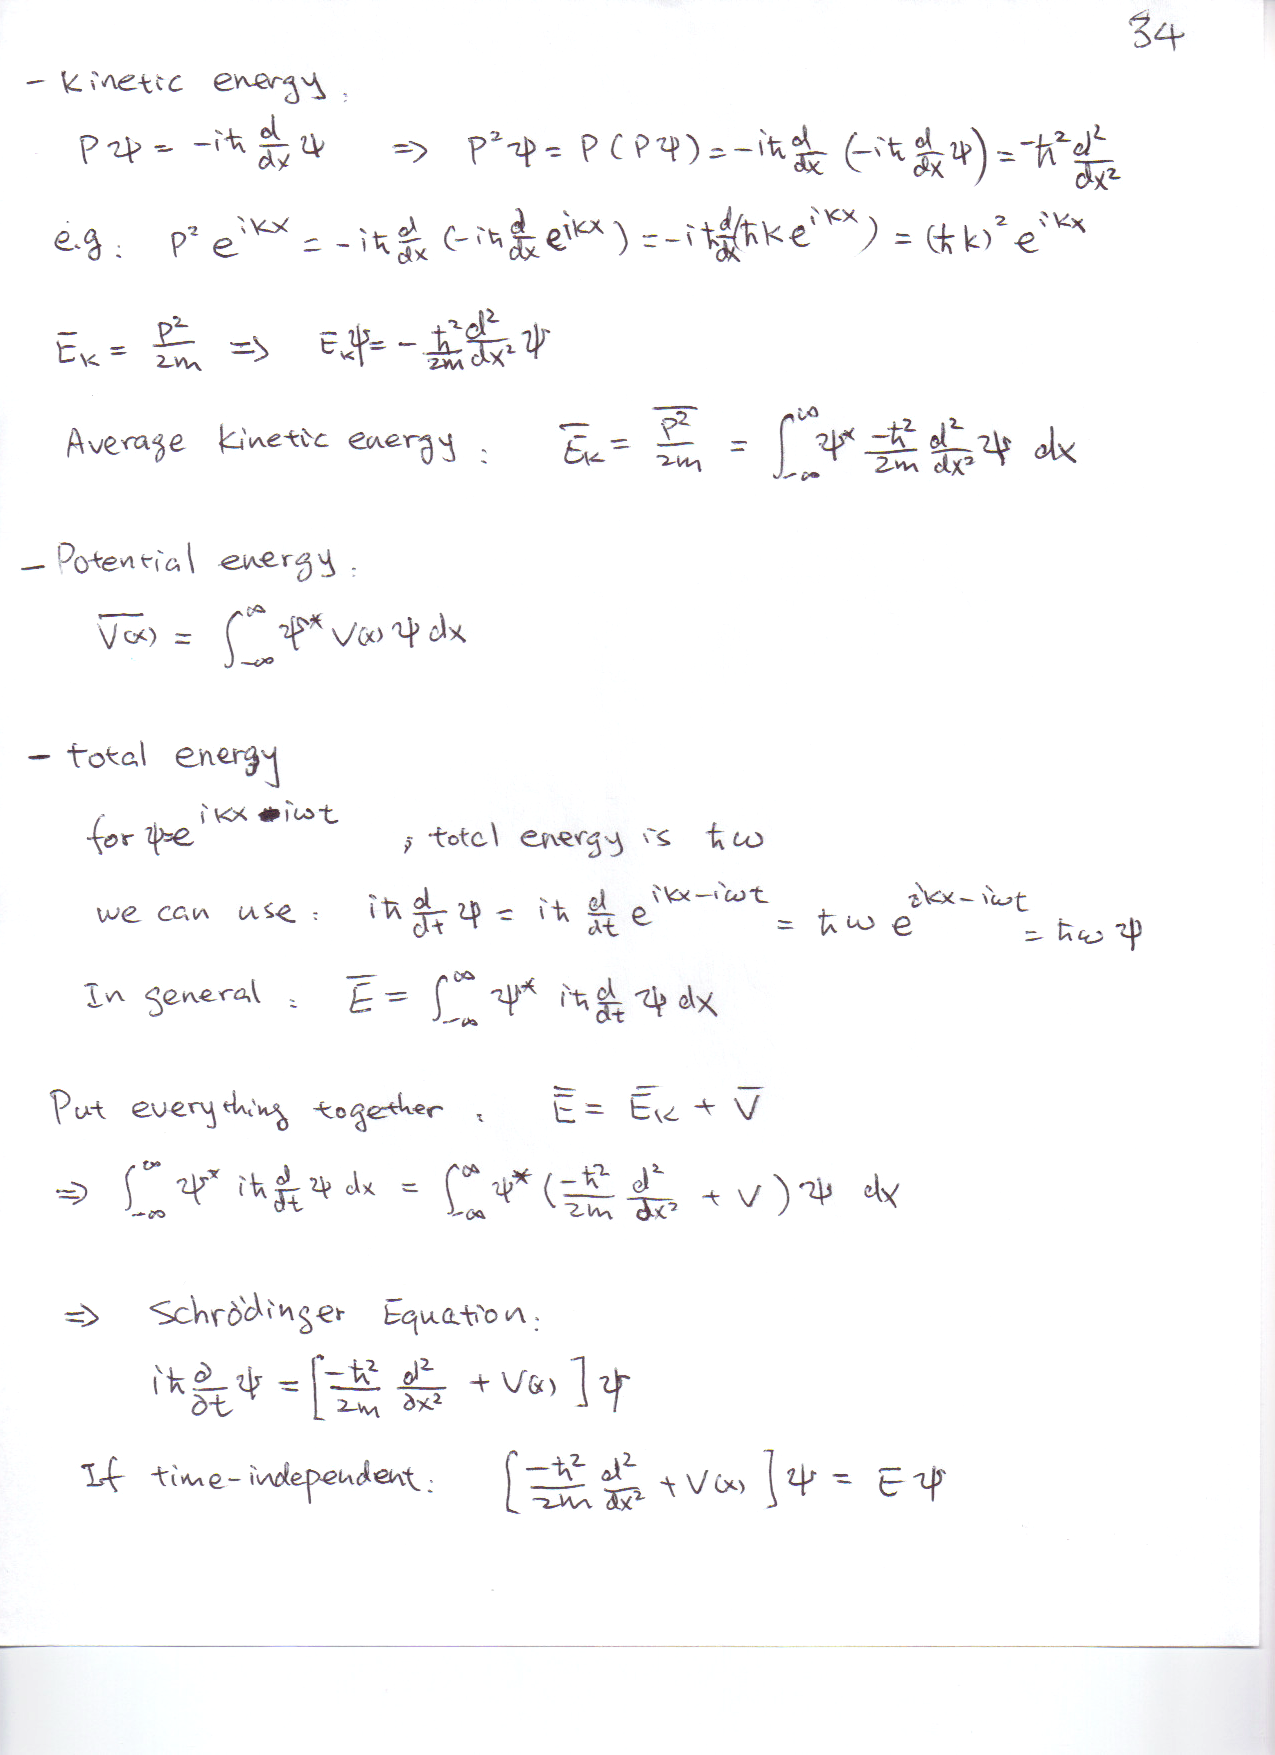 34
- Kinetic energy.
Pψ = -iħ d/dx ψ => P²ψ = P(Pψ) = -iħ d/dx (-iħ d/dx ψ) = -ħ² d²/dx²
e.g: P² e^{ikx} = -iħ d/dx (-iħ d/dx e^{ikx}) = -iħ d/dx (ħk e^{ikx}) = (ħk)² e^{ikx}
E̅_K = P²/2m => E_K ψ = - ħ²/2m d²/dx² ψ
Average kinetic energy: E̅_K = \overline{P²}/2m = ∫_{-∞}^{∞} ψ* -ħ²/2m d²/dx² ψ dx
- Potential energy:
\overline{V(x)} = ∫_{-∞}^{∞} ψ* V(x) ψ dx
- total energy
for ψ=e^{ikx-iωt}, total energy is ħω
we can use: iħ d/dt ψ = iħ d/dt e^{ikx-iωt} = ħω e^{ikx-iωt} = ħω ψ
In general: E̅ = ∫_{-∞}^{∞} ψ* iħ d/dt ψ dx
Put everything together: E̅ = E̅_K + V̅
=> ∫_{-∞}^{∞} ψ* iħ d/dt ψ dx = ∫_{-∞}^{∞} ψ* (-ħ²/2m d²/dx² + V) ψ dx
=> Schrödinger Equation:
iħ ∂/∂t ψ = [-ħ²/2m ∂²/∂x² + V(x)] ψ
If time-independent: [-ħ²/2m d²/dx² + V(x)] ψ = Eψ